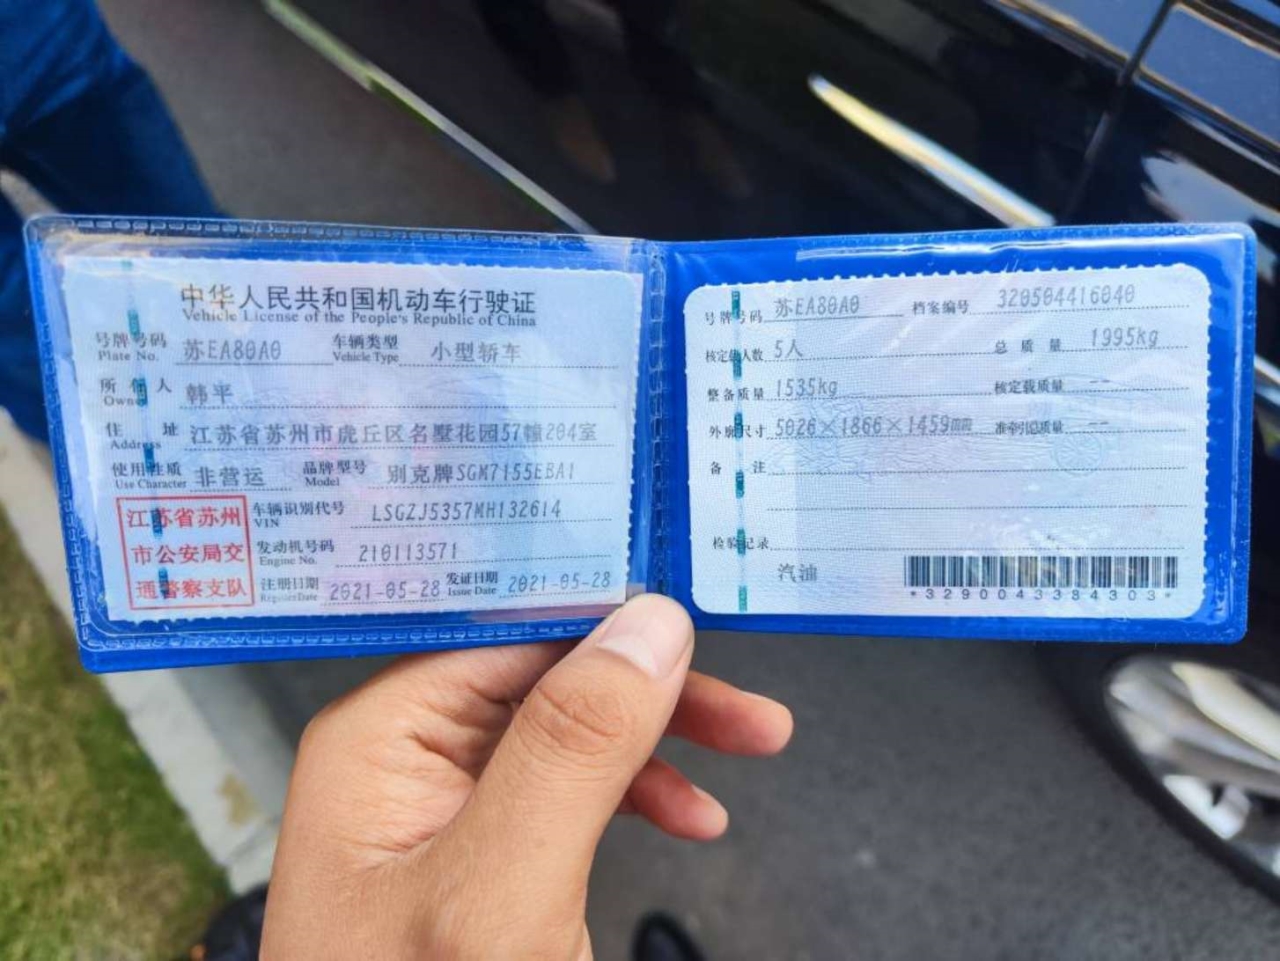 中华人民共和国机动车行驶证
Vehicle License of the People's Republic of China
号牌号码 苏EA80A0 车辆类型 小型轿车
Plate No. Vehicle Type
所有人 韩平
Owner
住址 江苏省苏州市虎丘区名墅花园57幢204室
Address
使用性质 非营运 品牌型号 别克牌SGM7155EBA1
Use Character Model
江苏省苏州
市公安局交
通警察支队
车辆识别代号 LSGZJ5357MH132614
VIN
发动机号码 210113571
Engine No.
注册日期 2021-05-28 发证日期 2021-05-28
Register Date Issue Date
号牌号码 苏EA80A0 档案编号 320504416040
核定载人数 5人 总质量 1995kg
整备质量 1535kg 核定载质量 --
外廓尺寸 5026×1866×1459mm 准牵引总质量 --
备注
检验记录
汽油
*3290043384303*